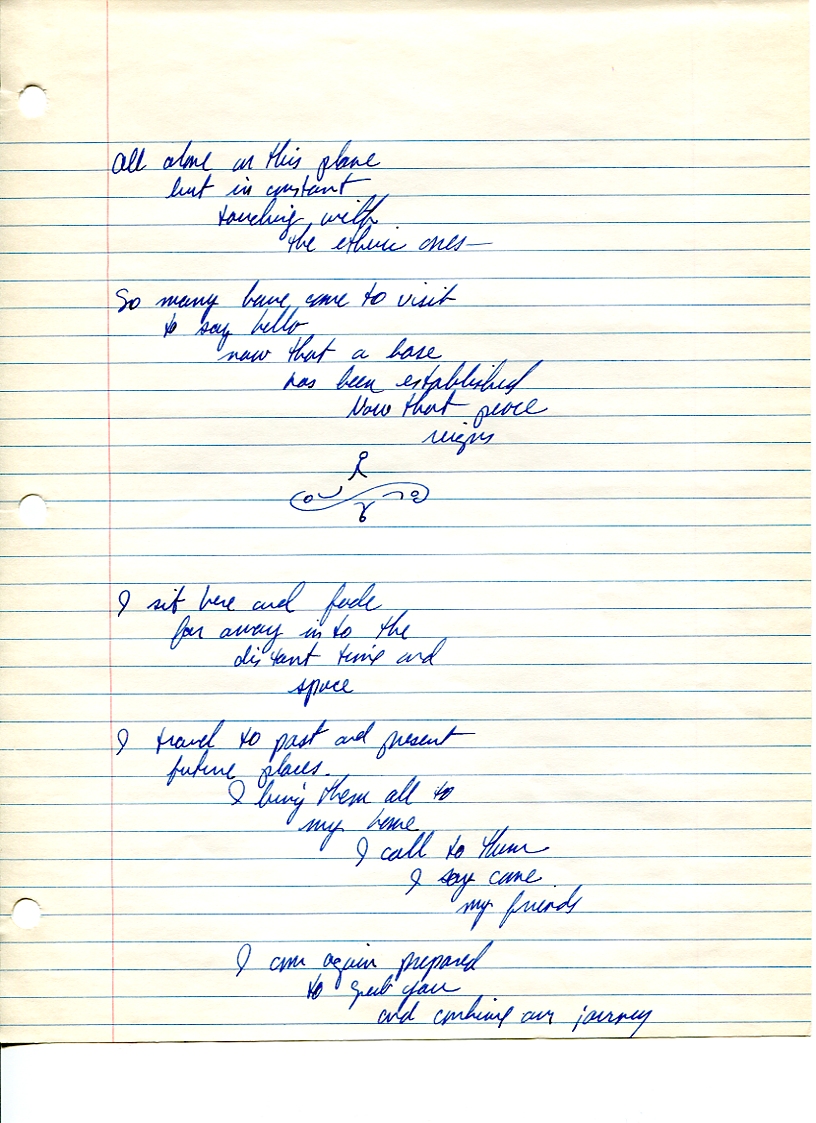 All alone on this plane
but in constant
touching with
the etheric ones—
So many have come to visit
to say hello
now that a base
has been established
Now that peace
reigns
I sit here and fade
far away in to the
distant time and
space
I travel to past and present
future places.
I bring them all to
my home
I call to them
I say come
my friends
I am again prepared
to greet you
and combine our journey